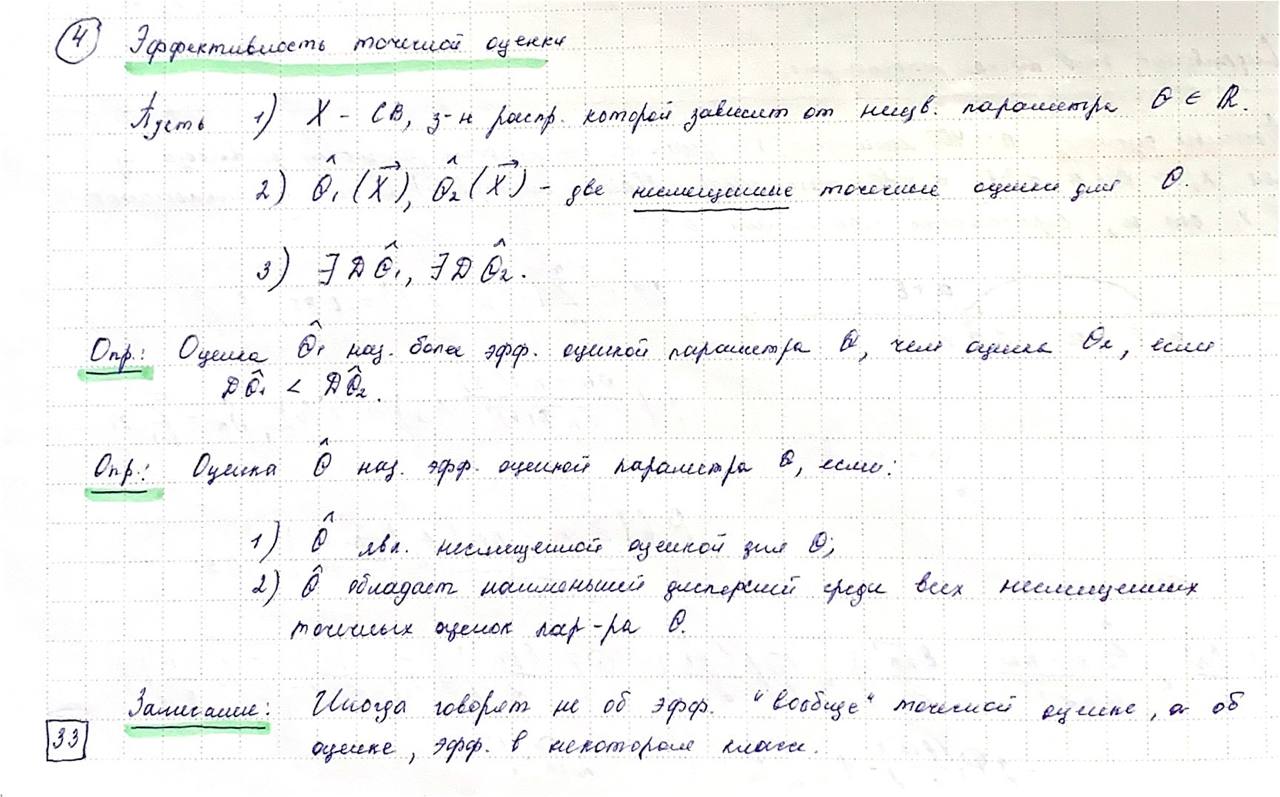 4 Эффективность точечной оценки
Пусть 1) X - СВ, з-н распр. которой зависит от неизв. параметра θ ∈ R.
2) θ̂₁(X⃗), θ̂₂(X⃗) - две несмещенные точечные оценки для θ.
3) ∃ Dθ̂₁, ∃ Dθ̂₂.
Опр.: Оценка θ̂₁ наз. более эфф. оценкой параметра θ, чем оценка θ₂, если
Dθ̂₁ < Dθ̂₂.
Опр.: Оценка θ̂ наз. эфф. оценкой параметра θ, если:
1) θ̂ явл. несмещенной оценкой для θ;
2) θ̂ обладает наименьшей дисперсией среди всех несмещенных
точечных оценок пар-ра θ.
Замечание: Иногда говорят не об эфф. "вообще" точечной оценке, а об
33 оценке, эфф. в некотором классе.